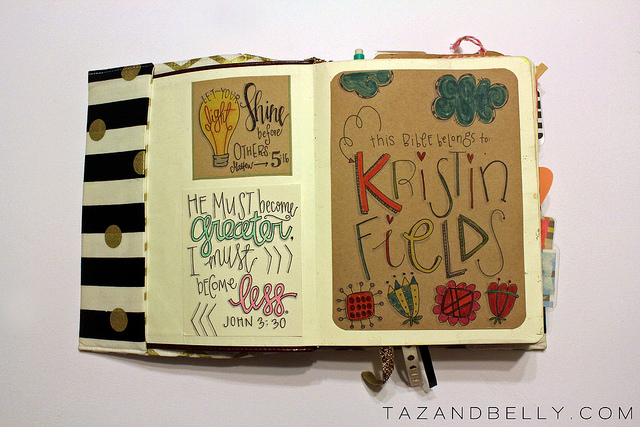 LET YOUR
light Shine
before
OTHERS
Matthew → 5:16
HE MUST become
Greater,
I must
become less.
JOHN 3:30
this Bible belongs to:
KRiSTiN
FieLDS
TAZANDBELLY.COM